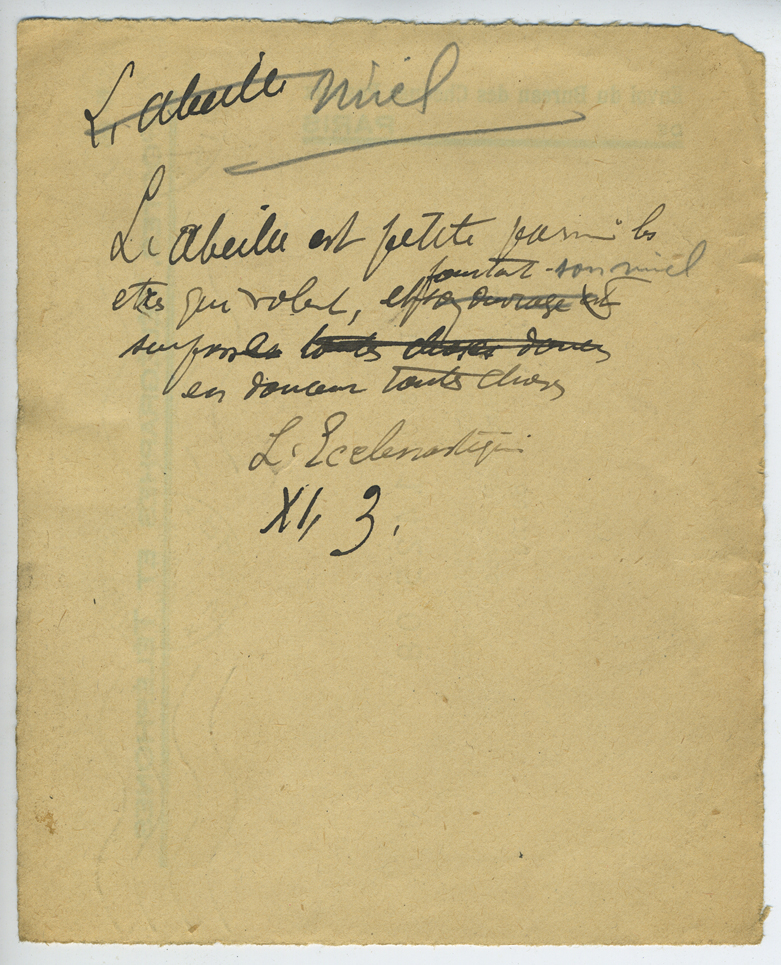 L'abeille miel
L'abeille est petite parmi les
pourtant son miel
etres qui volent, et son ouvrage est
surpasse toutes choses douces
en douceur toutes choses
L'Ecclesiastique
XI, 3.